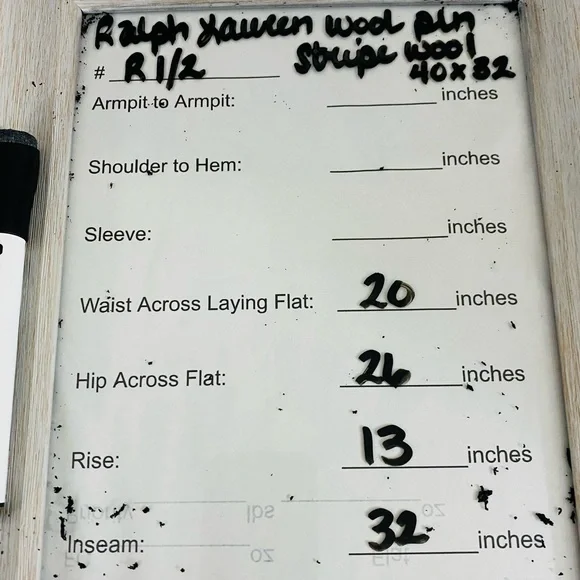 Ralph Lauren wool pin
Stripe wool
# R 1/2 40x32
Armpit to Armpit: inches
Shoulder to Hem: inches
Sleeve: inches
Waist Across Laying Flat: 20 inches
Hip Across Flat: 26 inches
Rise: 13 inches
Inseam: 32 inches